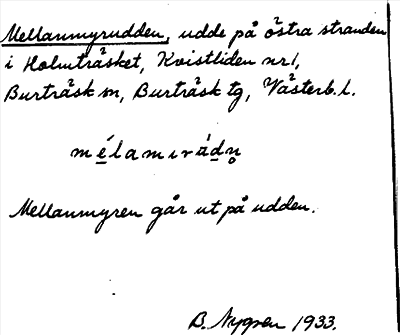 Mellanmyrudden, udde på östra stranden
i Holmträsket, Kvistliden nr 1,
Burträsk sn, Burträsk tg, Västerb. l.
Mellanmyren går ut på udden.
B. Nygren 1933.